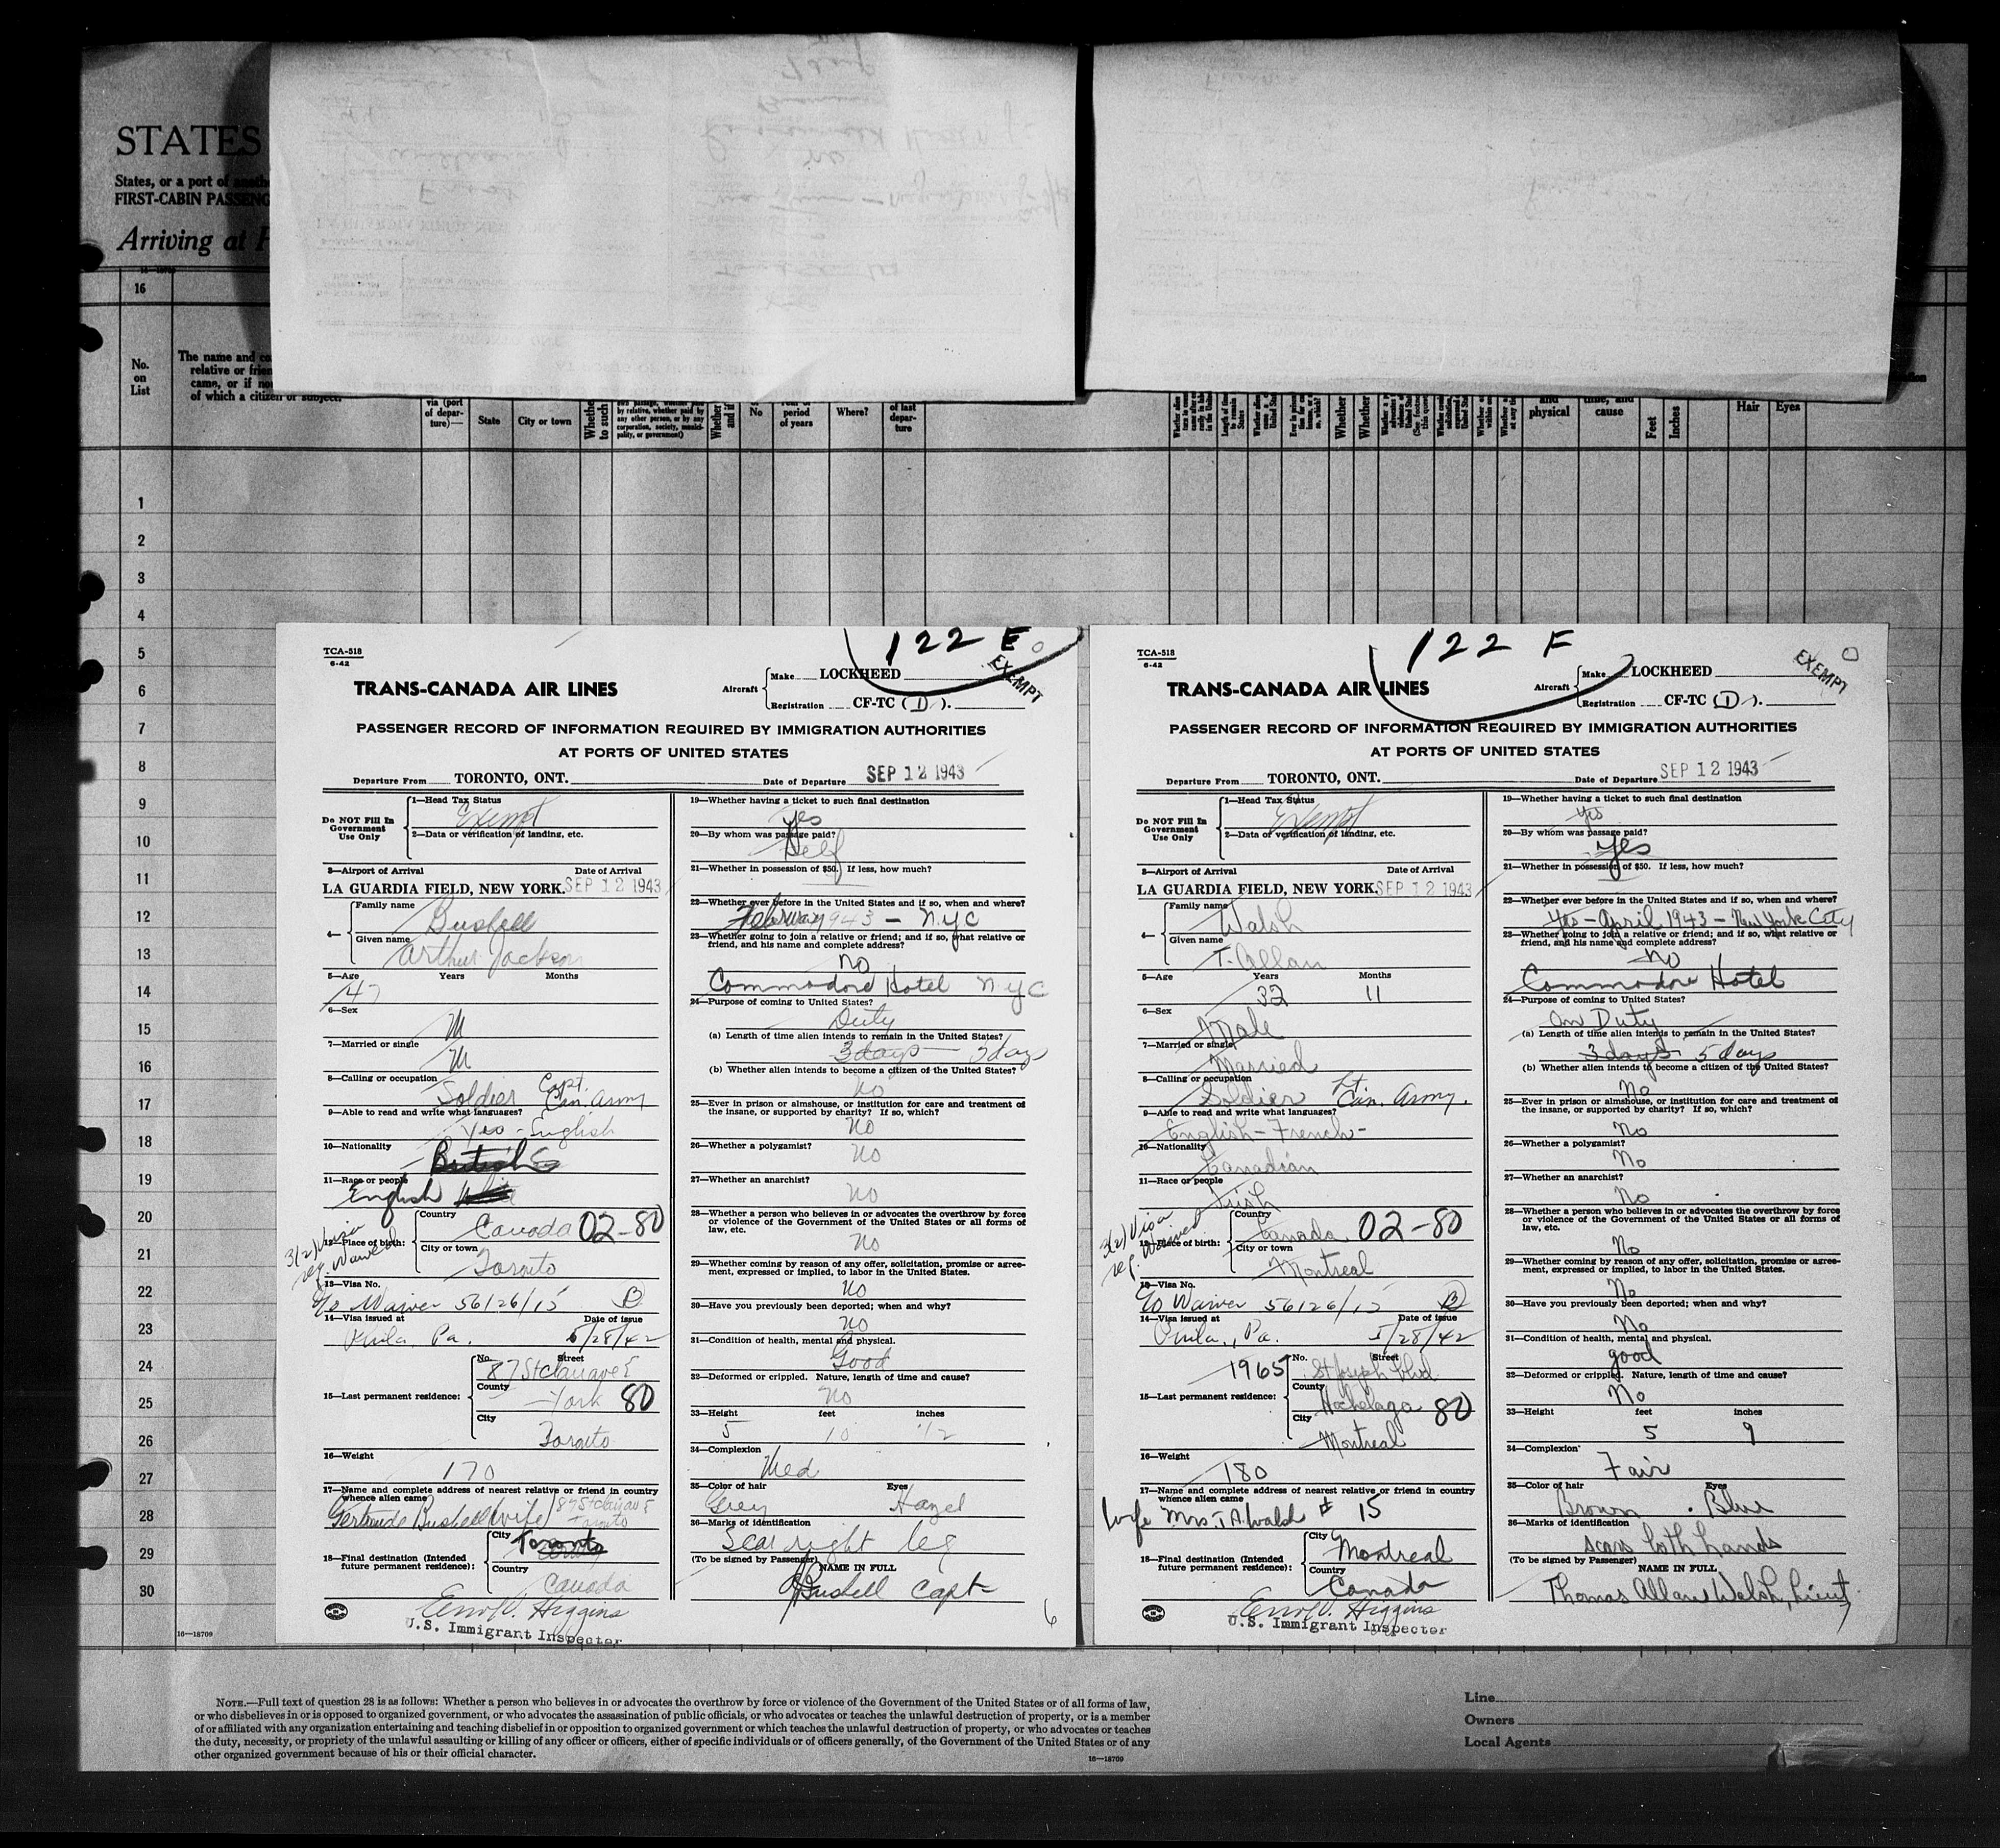 STATES
States, or a port of
FIRST-CABIN PASSENG
Arriving at
16
No.
on
List
The name and co
relative or frien
came, or if no
of which a citizen or subject.
via (port
of depar-
ture)—
State
City or town
Whether
to such
by relative, whether paid by
any other person, or by any
corporation, society, munici-
pality, or government)
Whether
and if
No
period
of years
Where?
of last
depar-
ture
and
physical
time, and
cause
Feet
Inches
Hair
Eyes
1
2
3
4
5
6
7
8
9
10
11
12
13
14
15
16
17
18
19
20
21
22
23
24
25
26
27
28
29
30
16—18709
122 E
EXEMPT
TCA-518
6-42
TRANS-CANADA AIR LINES
Aircraft
Make LOCKHEED
Registration CF-TC (D).
PASSENGER RECORD OF INFORMATION REQUIRED BY IMMIGRATION AUTHORITIES
AT PORTS OF UNITED STATES
Departure From TORONTO, ONT. Date of Departure SEP 12 1943
Do NOT Fill In
Government
Use Only
1—Head Tax Status
Exempt
2—Data or verification of landing, etc.
3—Airport of Arrival Date of Arrival
LA GUARDIA FIELD, NEW YORK. SEP 12 1943
4—
Family name
Bushell
Given name
Arthur Jackson
5—Age Years Months
47
6—Sex
M
7—Married or single
M
8—Calling or occupation
Soldier Capt. Can. Army
9—Able to read and write what languages?
Yes - English
10—Nationality
British
11—Race or people
English
3(2) Visa
req. Waived
12—Place of birth:
Country
Canada 02-80
City or town
Toronto
13—Visa No.
Waiver 56126/15 B
14—Visa issued at Date of issue
Phila. Pa. 5/28/42
15—Last permanent residence:
No. Street
87 St Clair ave E
County
York 80
City
Toronto
16—Weight
170
17—Name and complete address of nearest relative or friend in country
whence alien came
Gertrude Bushell (wife) 87 St clair av E
Toronto
18—Final destination (Intended
future permanent residence):
City
Toronto
Country
Canada
Errol V. Higgins
U.S. Immigrant Inspector
19—Whether having a ticket to such final destination
Yes
20—By whom was passage paid?
Self
21—Whether in possession of $50. If less, how much?
22—Whether ever before in the United States and if so, when and where?
February 1943 - NYC
23—Whether going to join a relative or friend; and if so, what relative or
friend, and his name and complete address?
No
Commodore Hotel NYC
24—Purpose of coming to United States?
Duty
(a) Length of time alien intends to remain in the United States?
3 days 5 days
(b) Whether alien intends to become a citizen of the United States?
No
25—Ever in prison or almshouse, or institution for care and treatment of
the insane, or supported by charity? If so, which?
No
26—Whether a polygamist?
No
27—Whether an anarchist?
No
28—Whether a person who believes in or advocates the overthrow by force
or violence of the Government of the United States or all forms of
law, etc.
No
29—Whether coming by reason of any offer, solicitation, promise or agree-
ment, expressed or implied, to labor in the United States.
No
30—Have you previously been deported; when and why?
No
31—Condition of health, mental and physical.
Good
32—Deformed or crippled. Nature, length of time and cause?
No
33—Height feet inches
5 10 1/2
34—Complexion
Med
35—Color of hair Eyes
Grey Hazel
36—Marks of identification
Scar right leg
(To be signed by Passenger) NAME IN FULL
AJ Bushell Capt
6
122 F
EXEMPT
TCA-518
6-42
TRANS-CANADA AIR LINES
Aircraft
Make LOCKHEED
Registration CF-TC (D).
PASSENGER RECORD OF INFORMATION REQUIRED BY IMMIGRATION AUTHORITIES
AT PORTS OF UNITED STATES
Departure From TORONTO, ONT. Date of Departure SEP 12 1943
Do NOT Fill In
Government
Use Only
1—Head Tax Status
Exempt
2—Data or verification of landing, etc.
3—Airport of Arrival Date of Arrival
LA GUARDIA FIELD, NEW YORK. SEP 12 1943
4—
Family name
Walsh
Given name
T. Allan
5—Age Years Months
32 11
6—Sex
Male
7—Married or single
Married
8—Calling or occupation
Soldier Lt. Can. Army.
9—Able to read and write what languages?
English - French -
10—Nationality
Canadian
11—Race or people
Irish
3(2) Visa
req. Waived
12—Place of birth:
Country
Canada 02-80
City or town
Montreal
13—Visa No.
Waiver 56126/15 B
14—Visa issued at Date of issue
Phila., Pa. 5/28/42
15—Last permanent residence:
No. Street
1965 St Joseph blvd.
County
Hochelaga 80
City
Montreal
16—Weight
180
17—Name and complete address of nearest relative or friend in country
whence alien came
Wife Mrs. T A Walsh # 15
18—Final destination (Intended
future permanent residence):
City
Montreal
Country
Canada
Errol V. Higgins
U.S. Immigrant Inspector
19—Whether having a ticket to such final destination
Yes
20—By whom was passage paid?
Yes
21—Whether in possession of $50. If less, how much?
22—Whether ever before in the United States and if so, when and where?
Yes - April 1943 - New York City
23—Whether going to join a relative or friend; and if so, what relative or
friend, and his name and complete address?
No
Commodore Hotel
24—Purpose of coming to United States?
On Duty
(a) Length of time alien intends to remain in the United States?
3 days 5 days
(b) Whether alien intends to become a citizen of the United States?
No
25—Ever in prison or almshouse, or institution for care and treatment of
the insane, or supported by charity? If so, which?
No
26—Whether a polygamist?
No
27—Whether an anarchist?
No
28—Whether a person who believes in or advocates the overthrow by force
or violence of the Government of the United States or all forms of
law, etc.
No
29—Whether coming by reason of any offer, solicitation, promise or agree-
ment, expressed or implied, to labor in the United States.
No
30—Have you previously been deported; when and why?
No
31—Condition of health, mental and physical.
good
32—Deformed or crippled. Nature, length of time and cause?
No
33—Height feet inches
5 9
34—Complexion
Fair
35—Color of hair Eyes
Brown Blue
36—Marks of identification
scars both hands
(To be signed by Passenger) NAME IN FULL
Thomas Allan Walsh, Lieut
NOTE.—Full text of question 28 is as follows: Whether a person who believes in or advocates the overthrow by force or violence of the Government of the United States or of all forms of law,
or who disbelieves in or is opposed to organized government, or who advocates the assassination of public officials, or who advocates or teaches the unlawful destruction of property, or is a member
of or affiliated with any organization entertaining and teaching disbelief in or opposition to organized government or which teaches the unlawful destruction of property, or who advocates or teaches
the duty, necessity, or propriety of the unlawful assaulting or killing of any officer or officers, either of specific individuals or of officers generally, of the Government of the United States or of any
other organized government because of his or their official character.
16—18709
Line
Owners
Local Agents